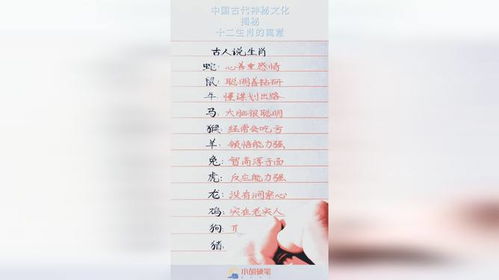 中国古代神秘文化
揭秘
十二生肖的寓意
古人说生肖
蛇:心善重感情
鼠:聪明善钻研
牛:懂谋划出路
马:大脑很聪明
猴:经常会吃亏
羊:领悟能力强
兔:智商浮于面
虎:反应能力强
龙:没有闲索心
鸡:实在老实人
狗:
猪:
小胡硬笔